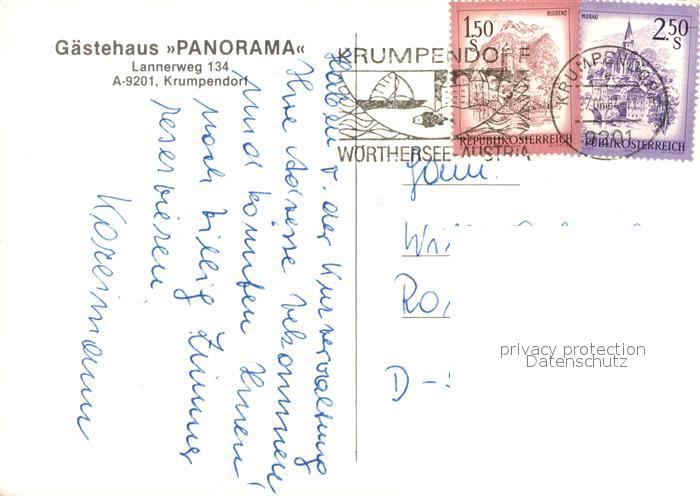 Gästehaus »PANORAMA«
Lannerweg 134
A-9201, Krumpendorf
KRUMPENDORF
WÖRTHERSEE-AUSTRIA
1.50
S
BLUDENZ
REPUBLIK ÖSTERREICH
2.50
S
MURAU
REPUBLIK ÖSTERREICH
KRUMPENDORF
9201
Haben v. der Kurverwaltung
Ihre Adresse bekommen
und könnten Ihnen
noch billig Zimmer
reservieren!
Koreimann
Fam.
D -
privacy protection
Datenschutz